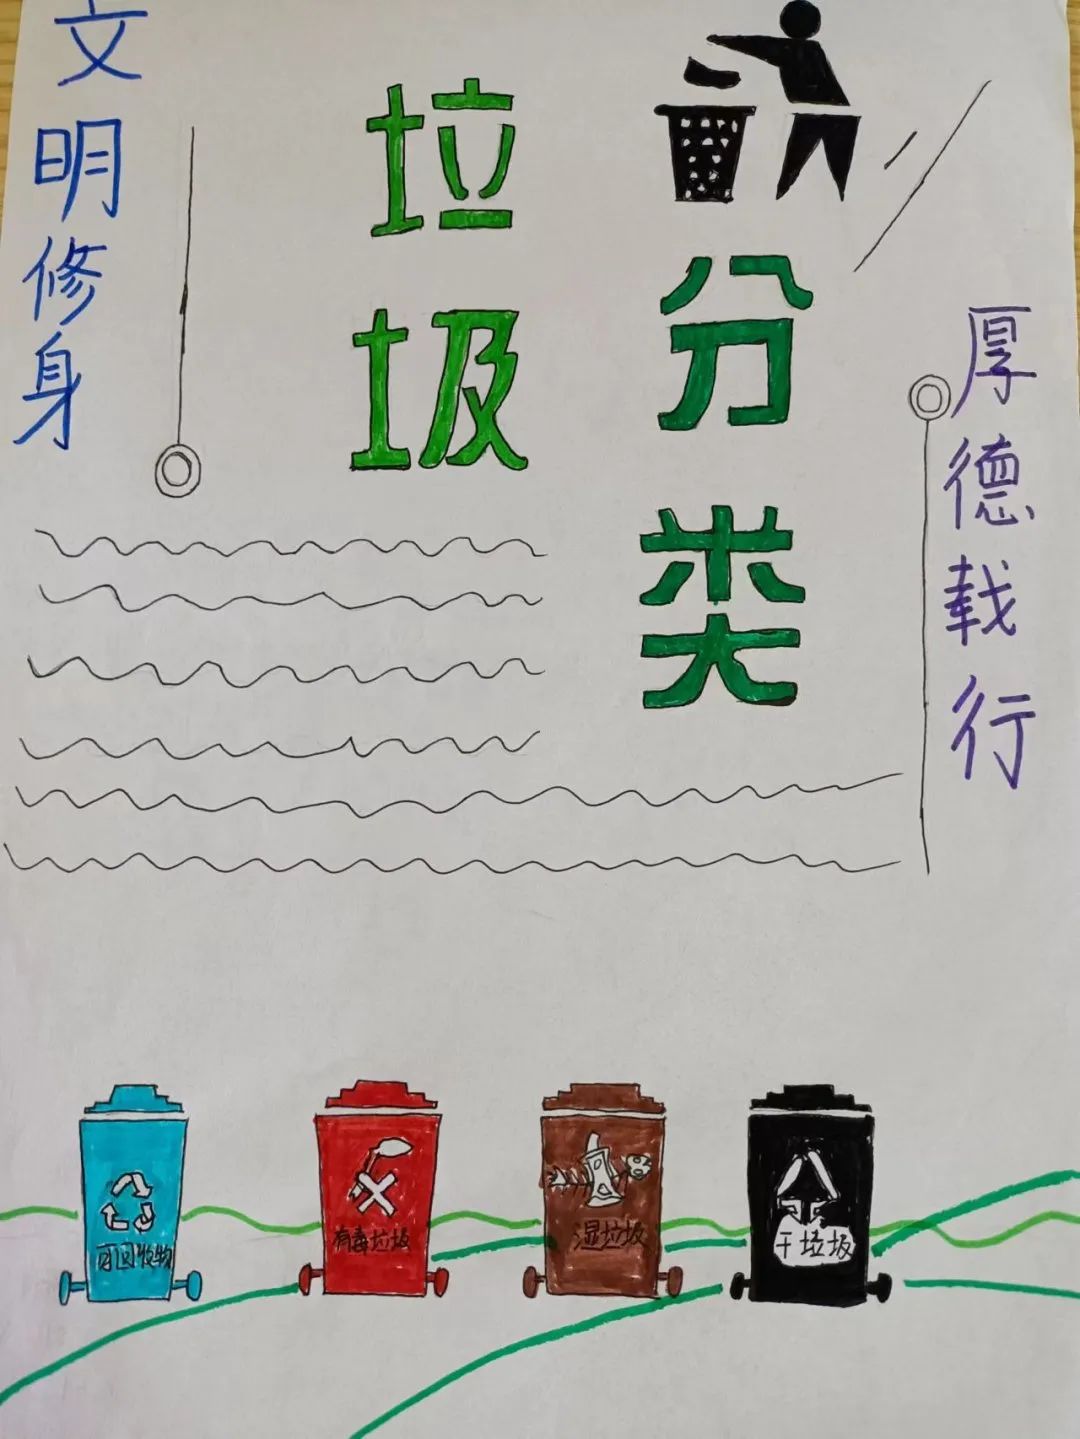 文明修身
垃圾
分类
厚德载行
可回收物
有毒垃圾
湿垃圾
干垃圾